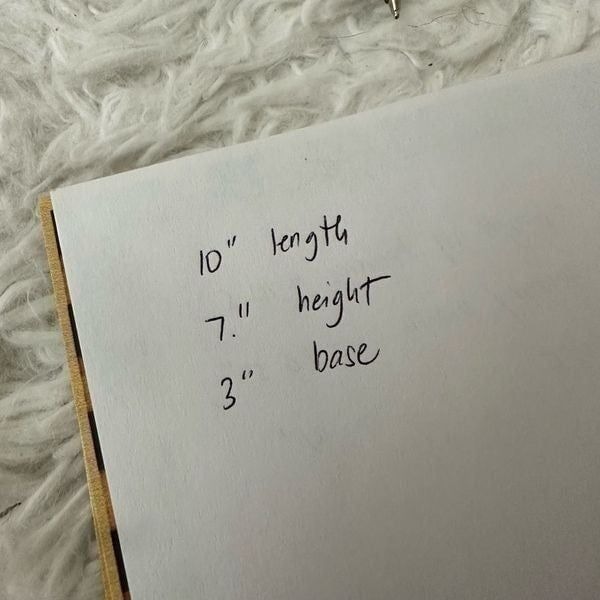 10" length
7." height
3" base